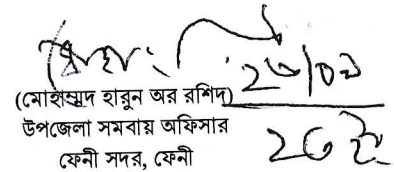 ২৬/০৯
(মোহাম্মদ হারুন অর রশিদ)
উপজেলা সমবায় অফিসার
ফেনী সদর, ফেনী